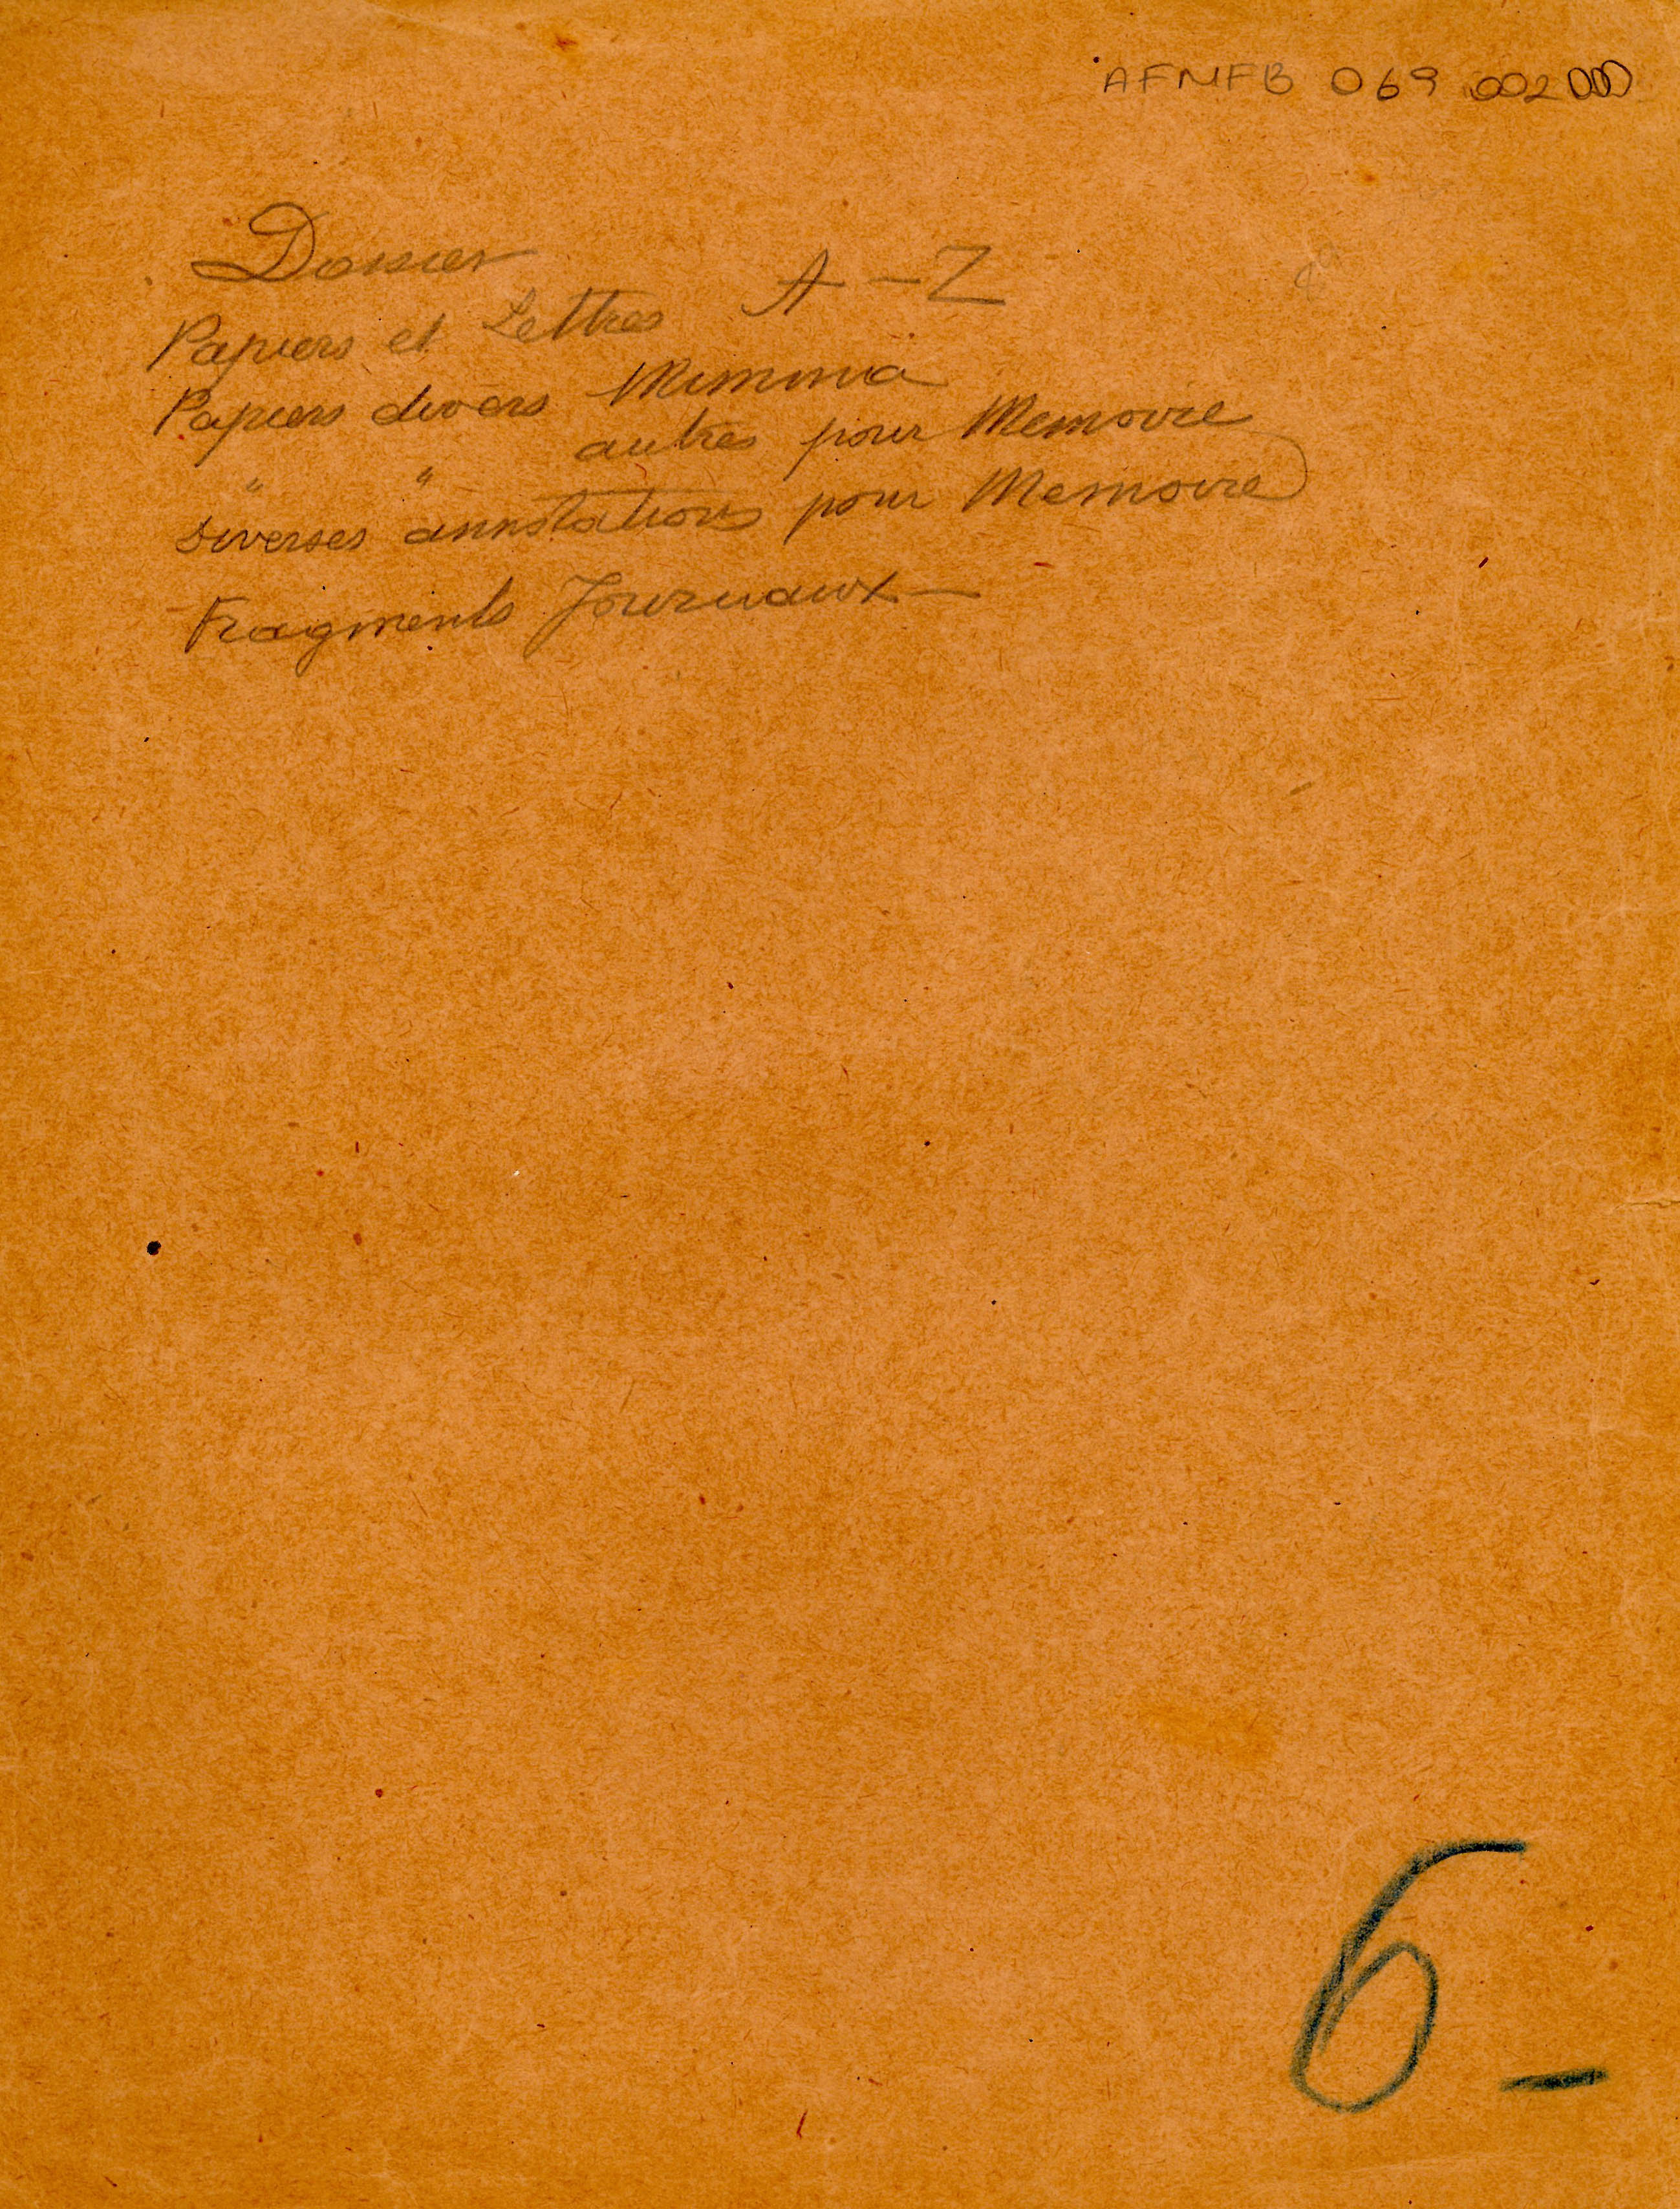 AFMFB 069 002000
Dossier
Papiers et Lettres A-Z
Papiers divers Mimmia
" " autres pour Memoire
Diverses annotations pour Memoire
Fragments Journaux —
6 —